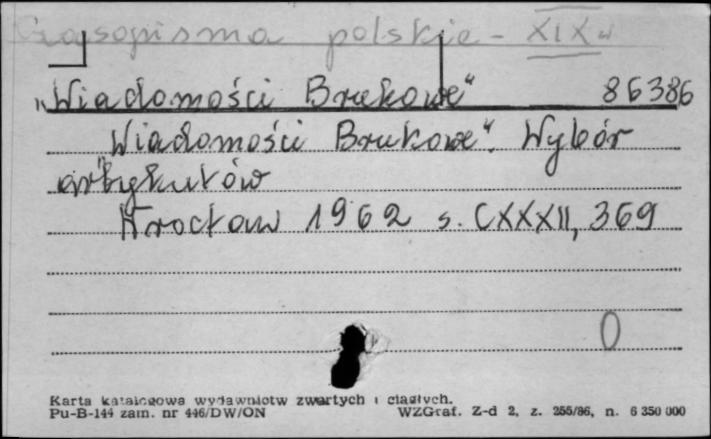 Czasopisma polskie - XIX w
„Wiadomości Brukowe" 86386
„Wiadomości Brukowe". Wybór
artykułów
Wrocław 1962 s. CXXXII, 369
0
Karta katalogowa wydawnictw zwartych i ciągłych.
Pu-B-144 zam. nr 446/DW/ON WZGraf. Z-d 2, z. 255/86, n. 6 350 000